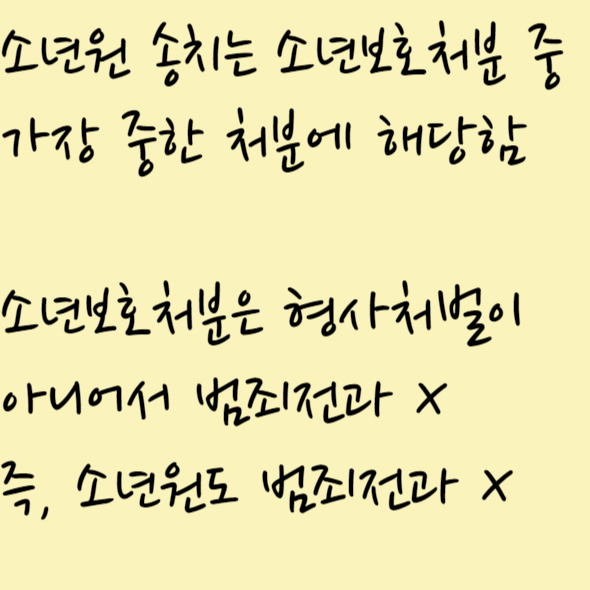 소년원 송치는 소년보호처분 중
가장 중한 처분에 해당함
소년보호처분은 형사처벌이
아니어서 범죄전과 X
즉, 소년원도 범죄전과 X